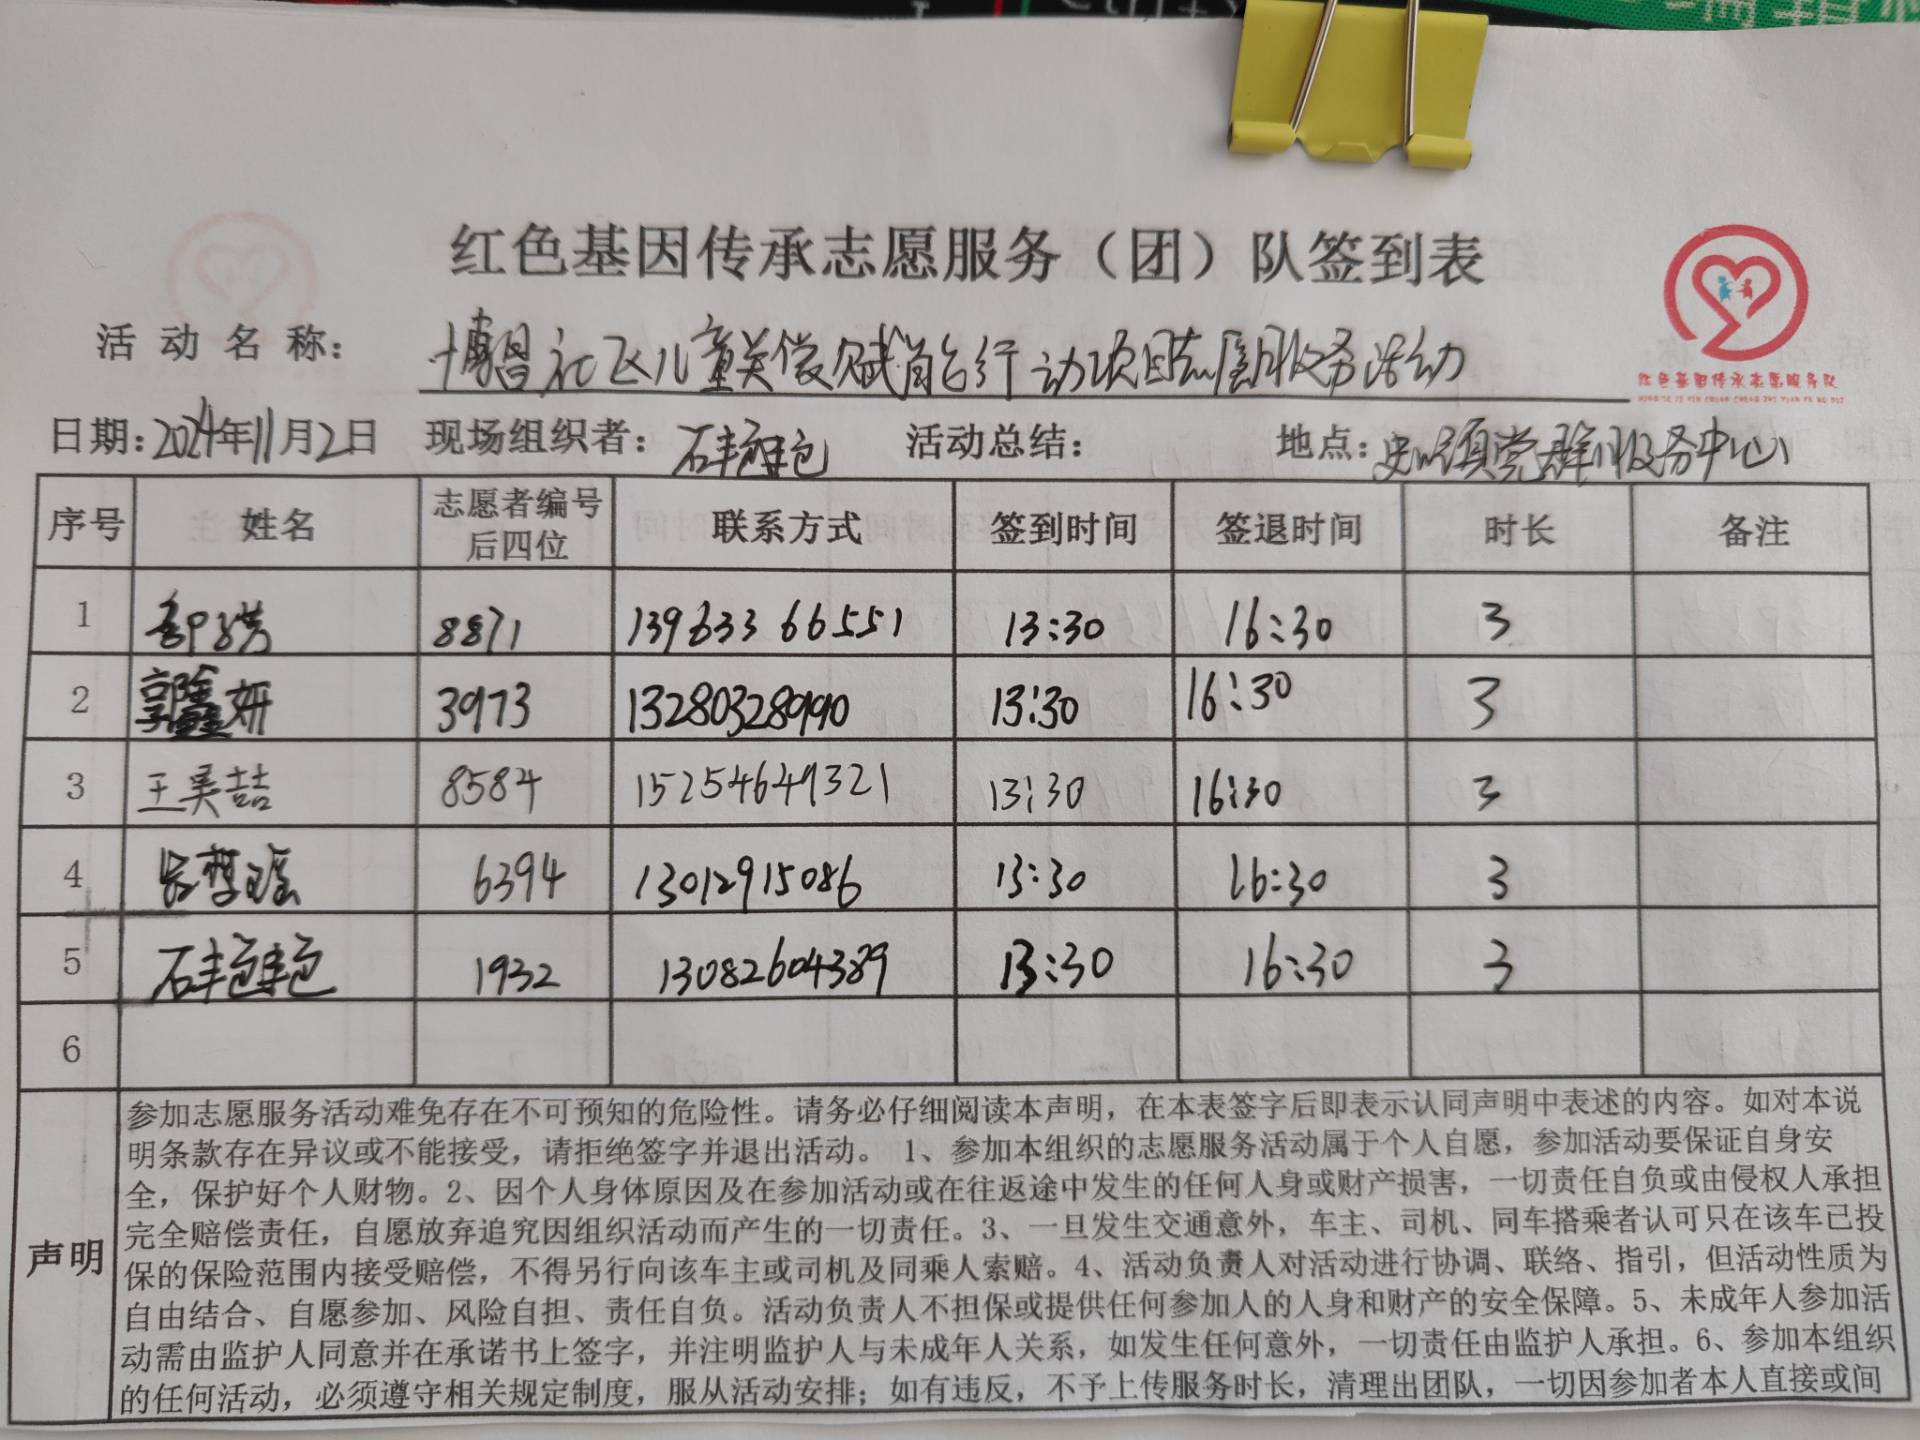 红色基因传承志愿服务（团）队签到表
活动名称： 博昌社区儿童关爱赋能行动项目志愿服务活动
红色基因传承志愿服务队
日期：2024年11月2日 现场组织者： 活动总结： 地点：党群服务中心
序号 姓名 志愿者编号后四位 联系方式 签到时间 签退时间 时长 备注
1 8871 13963366551 13:30 16:30 3
2 郭鑫妍 3973 13280328990 13:30 16:30 3
3 王昊喆 8584 15254649321 13:30 16:30 3
4 6394 13012915086 13:30 16:30 3
5 1932 13082604389 13:30 16:30 3
6
声明
参加志愿服务活动难免存在不可预知的危险性。请务必仔细阅读本声明，在本表签字后即表示认同声明中表述的内容。如对本说
明条款存在异议或不能接受，请拒绝签字并退出活动。 1、参加本组织的志愿服务活动属于个人自愿，参加活动要保证自身安
全，保护好个人财物。2、因个人身体原因及在参加活动或在往返途中发生的任何人身或财产损害，一切责任自负或由侵权人承担
完全赔偿责任，自愿放弃追究因组织活动而产生的一切责任。3、一旦发生交通意外，车主、司机、同车搭乘者认可只在该车已投
保的保险范围内接受赔偿，不得另行向该车主或司机及同乘人索赔。4、活动负责人对活动进行协调、联络、指引，但活动性质为
自由结合、自愿参加、风险自担、责任自负。活动负责人不担保或提供任何参加人的人身和财产的安全保障。5、未成年人参加活
动需由监护人同意并在承诺书上签字，并注明监护人与未成年人关系，如发生任何意外，一切责任由监护人承担。6、参加本组织
的任何活动，必须遵守相关规定制度，服从活动安排；如有违反，不予上传服务时长，清理出团队，一切因参加者本人直接或间